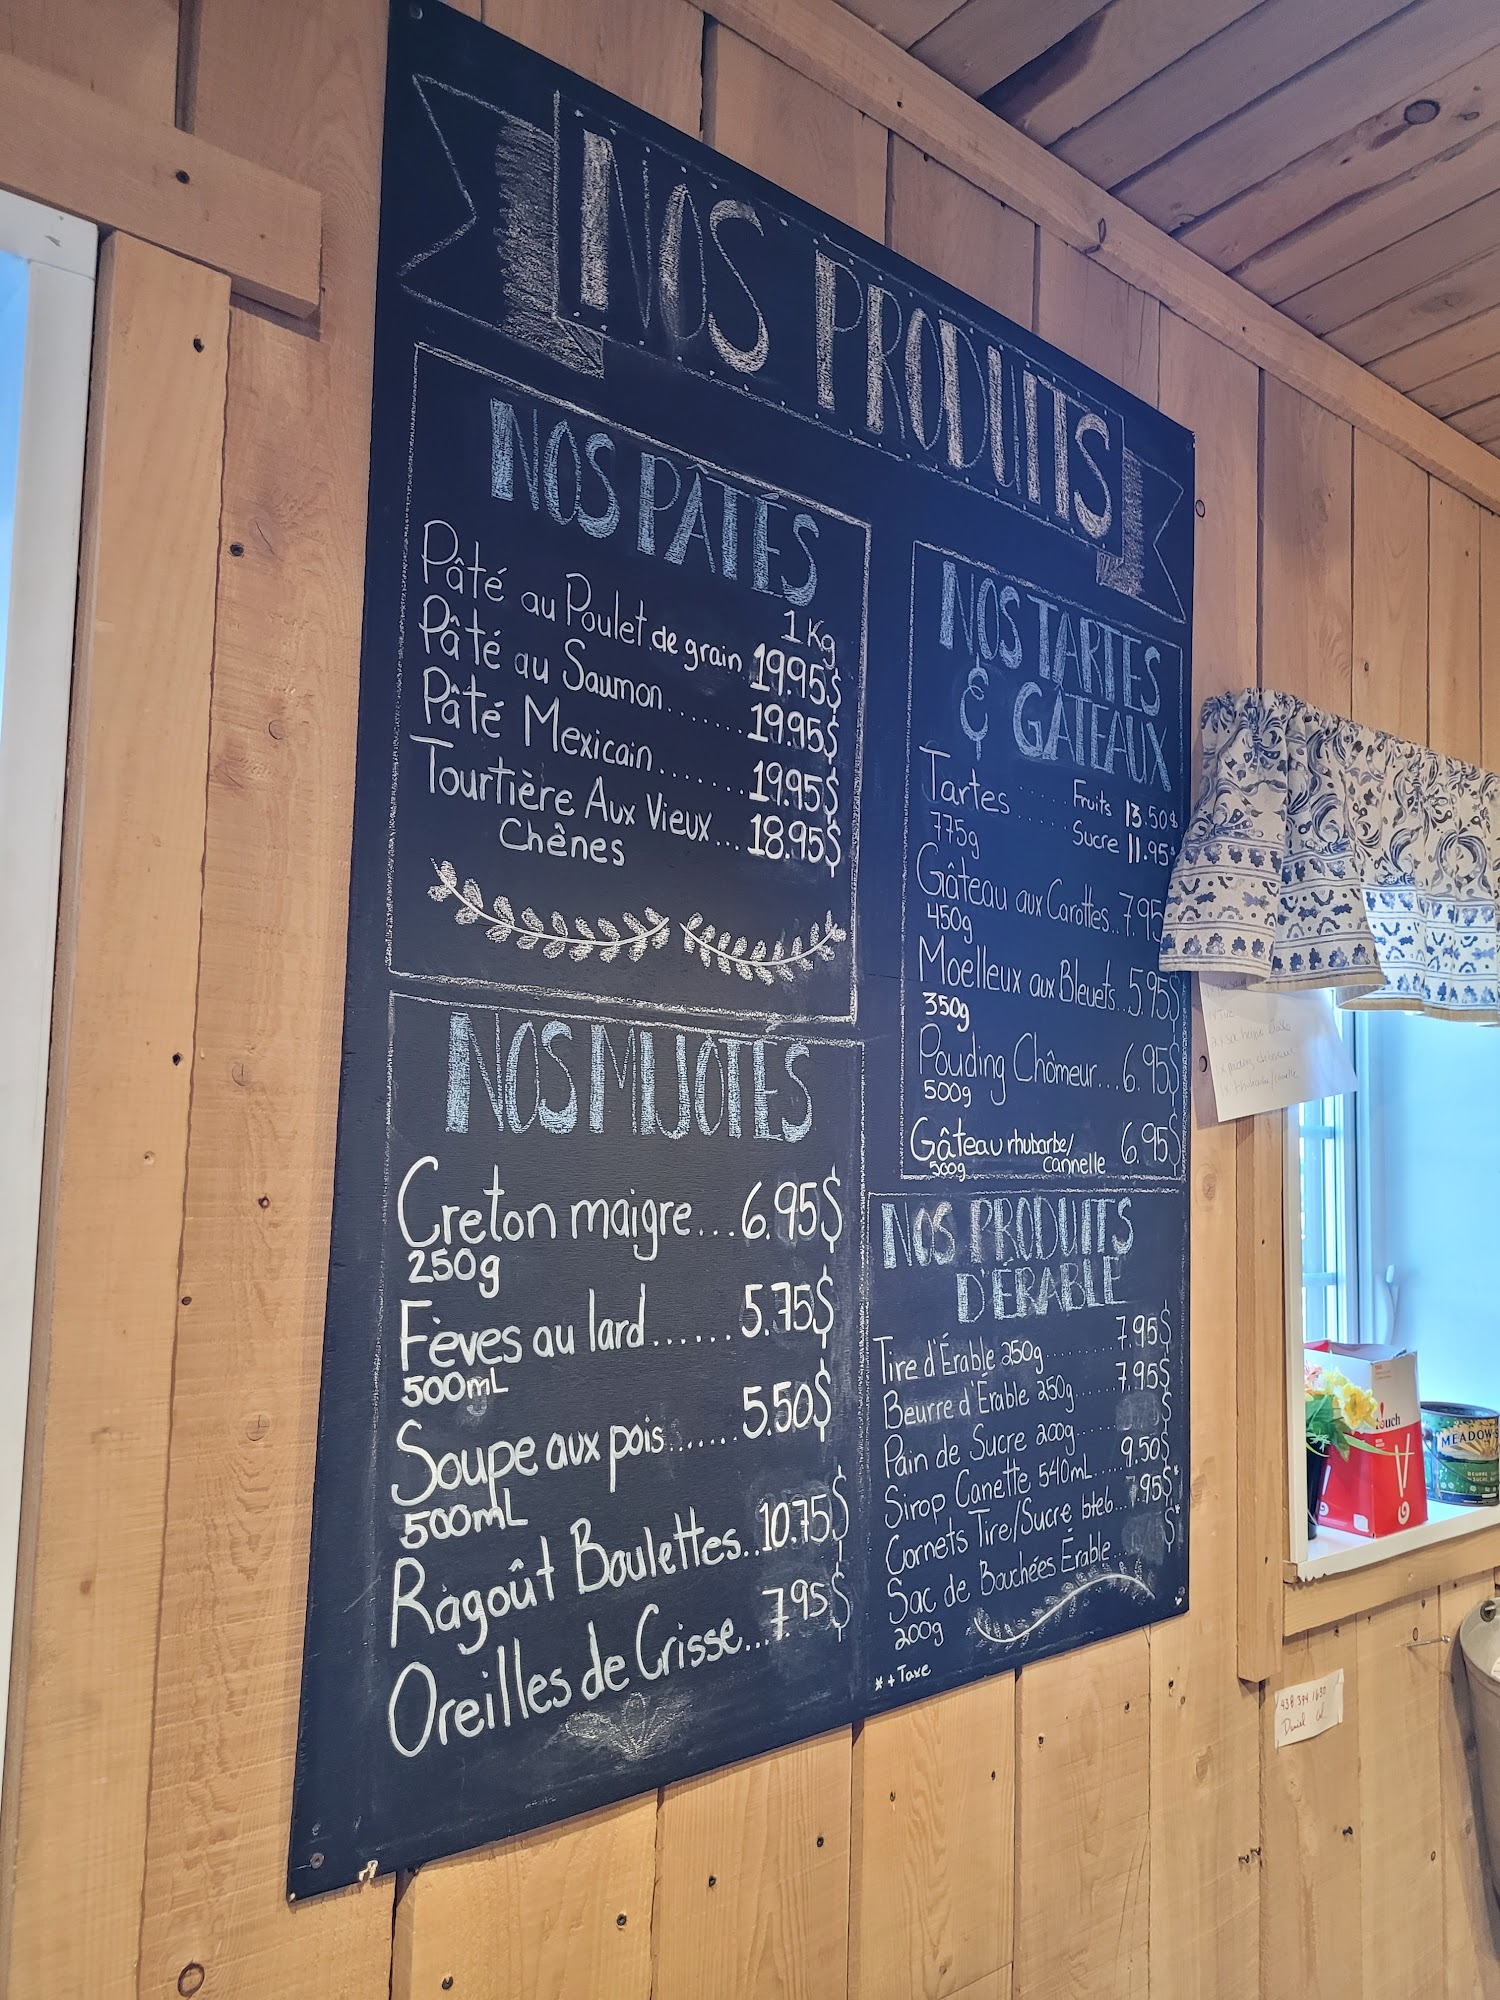 NOS PRODUITS
NOS PÂTÉS
1 Kg
Pâté au Poulet de grain 19.95$
Pâté au Saumon.......19.95$
Pâté Mexicain.......19.95$
Tourtière Aux Vieux...18.95$
Chênes
NOS MIJOTÉS
Creton maigre...6.95$
250g
Fèves au lard......5.75$
500mL
Soupe aux pois......5.50$
500mL
Ragoût Boulettes..10.75$
Oreilles de Crisse...7.95$
NOS TARTES
& GÂTEAUX
Tartes ..... Fruits 13.50$
775g ..... Sucre 11.95$
Gâteau aux Carottes..7.95
450g
Moelleux aux Bleuets..5.95$
350g
Pouding Chômeur...6.95$
500g
Gâteau rhubarbe/ 6.95$
500g cannelle
NOS PRODUITS
D'ÉRABLE
Tire d'Érable 250g..........7.95$
Beurre d'Érable 250g......7.95$
Pain de Sucre 200g..........$
Sirop Canette 540mL.....9.50$
Cornets Tire/Sucre bte6...7.95$*
Sac de Bouchées Érable...$*
200g
* + Taxe
touch
MEADOW
438 394 1630
Daniel